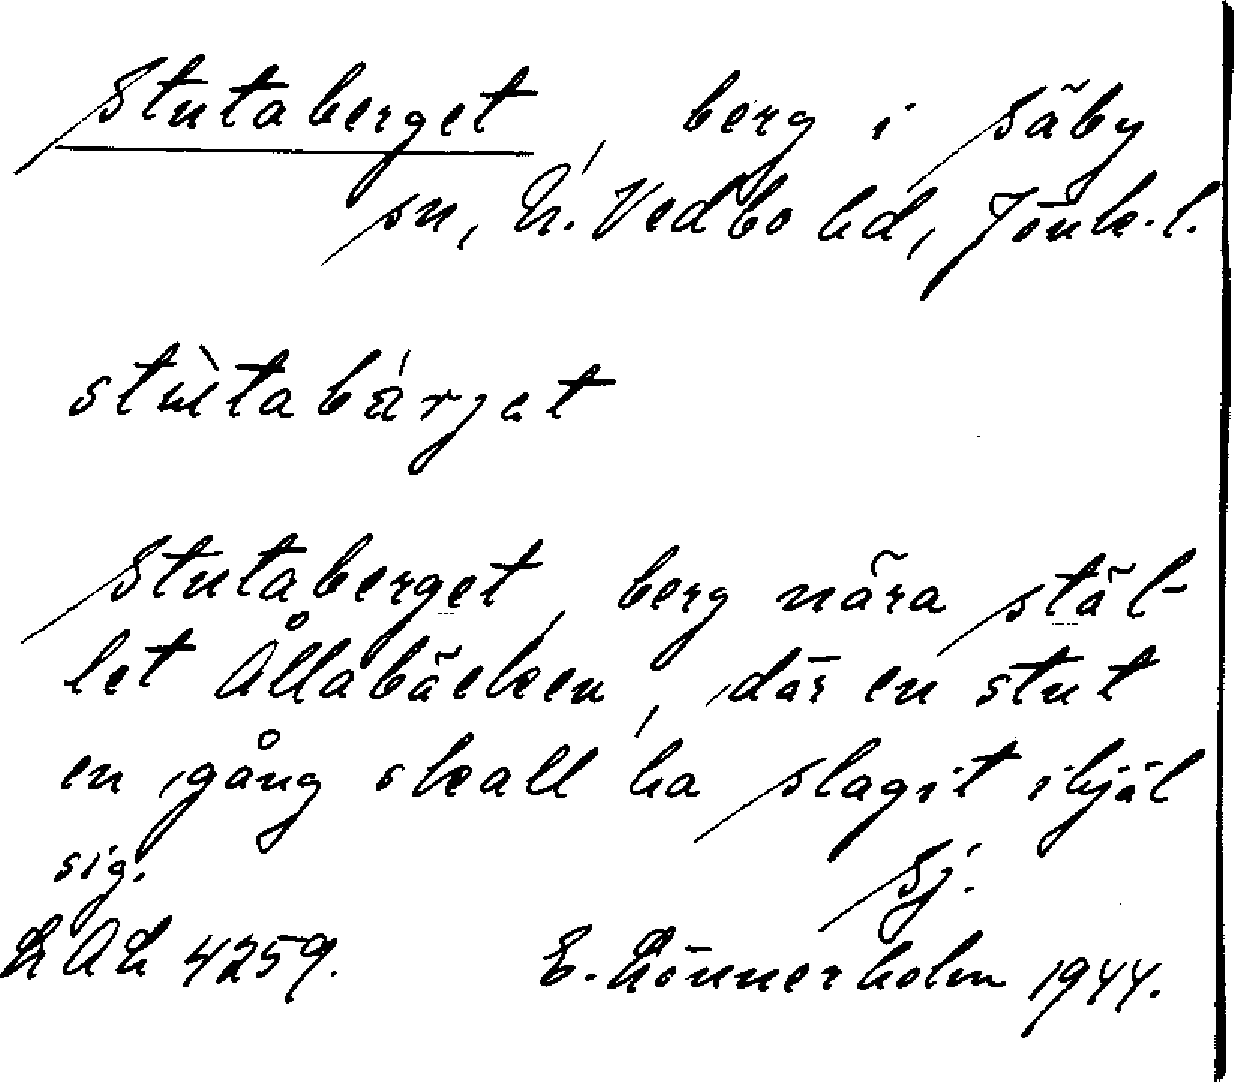 Stutaberget, berg i Säby
sn, N. Vedbo hd, Jönk. l.
stùtabä́rjət
Stutaberget, berg nära stäl-
let Ållabäcken, där en stut
en gång skall ha slagit ihjäl
sig. Sj.
LAL 4259. E. Lönnerholm 1944.